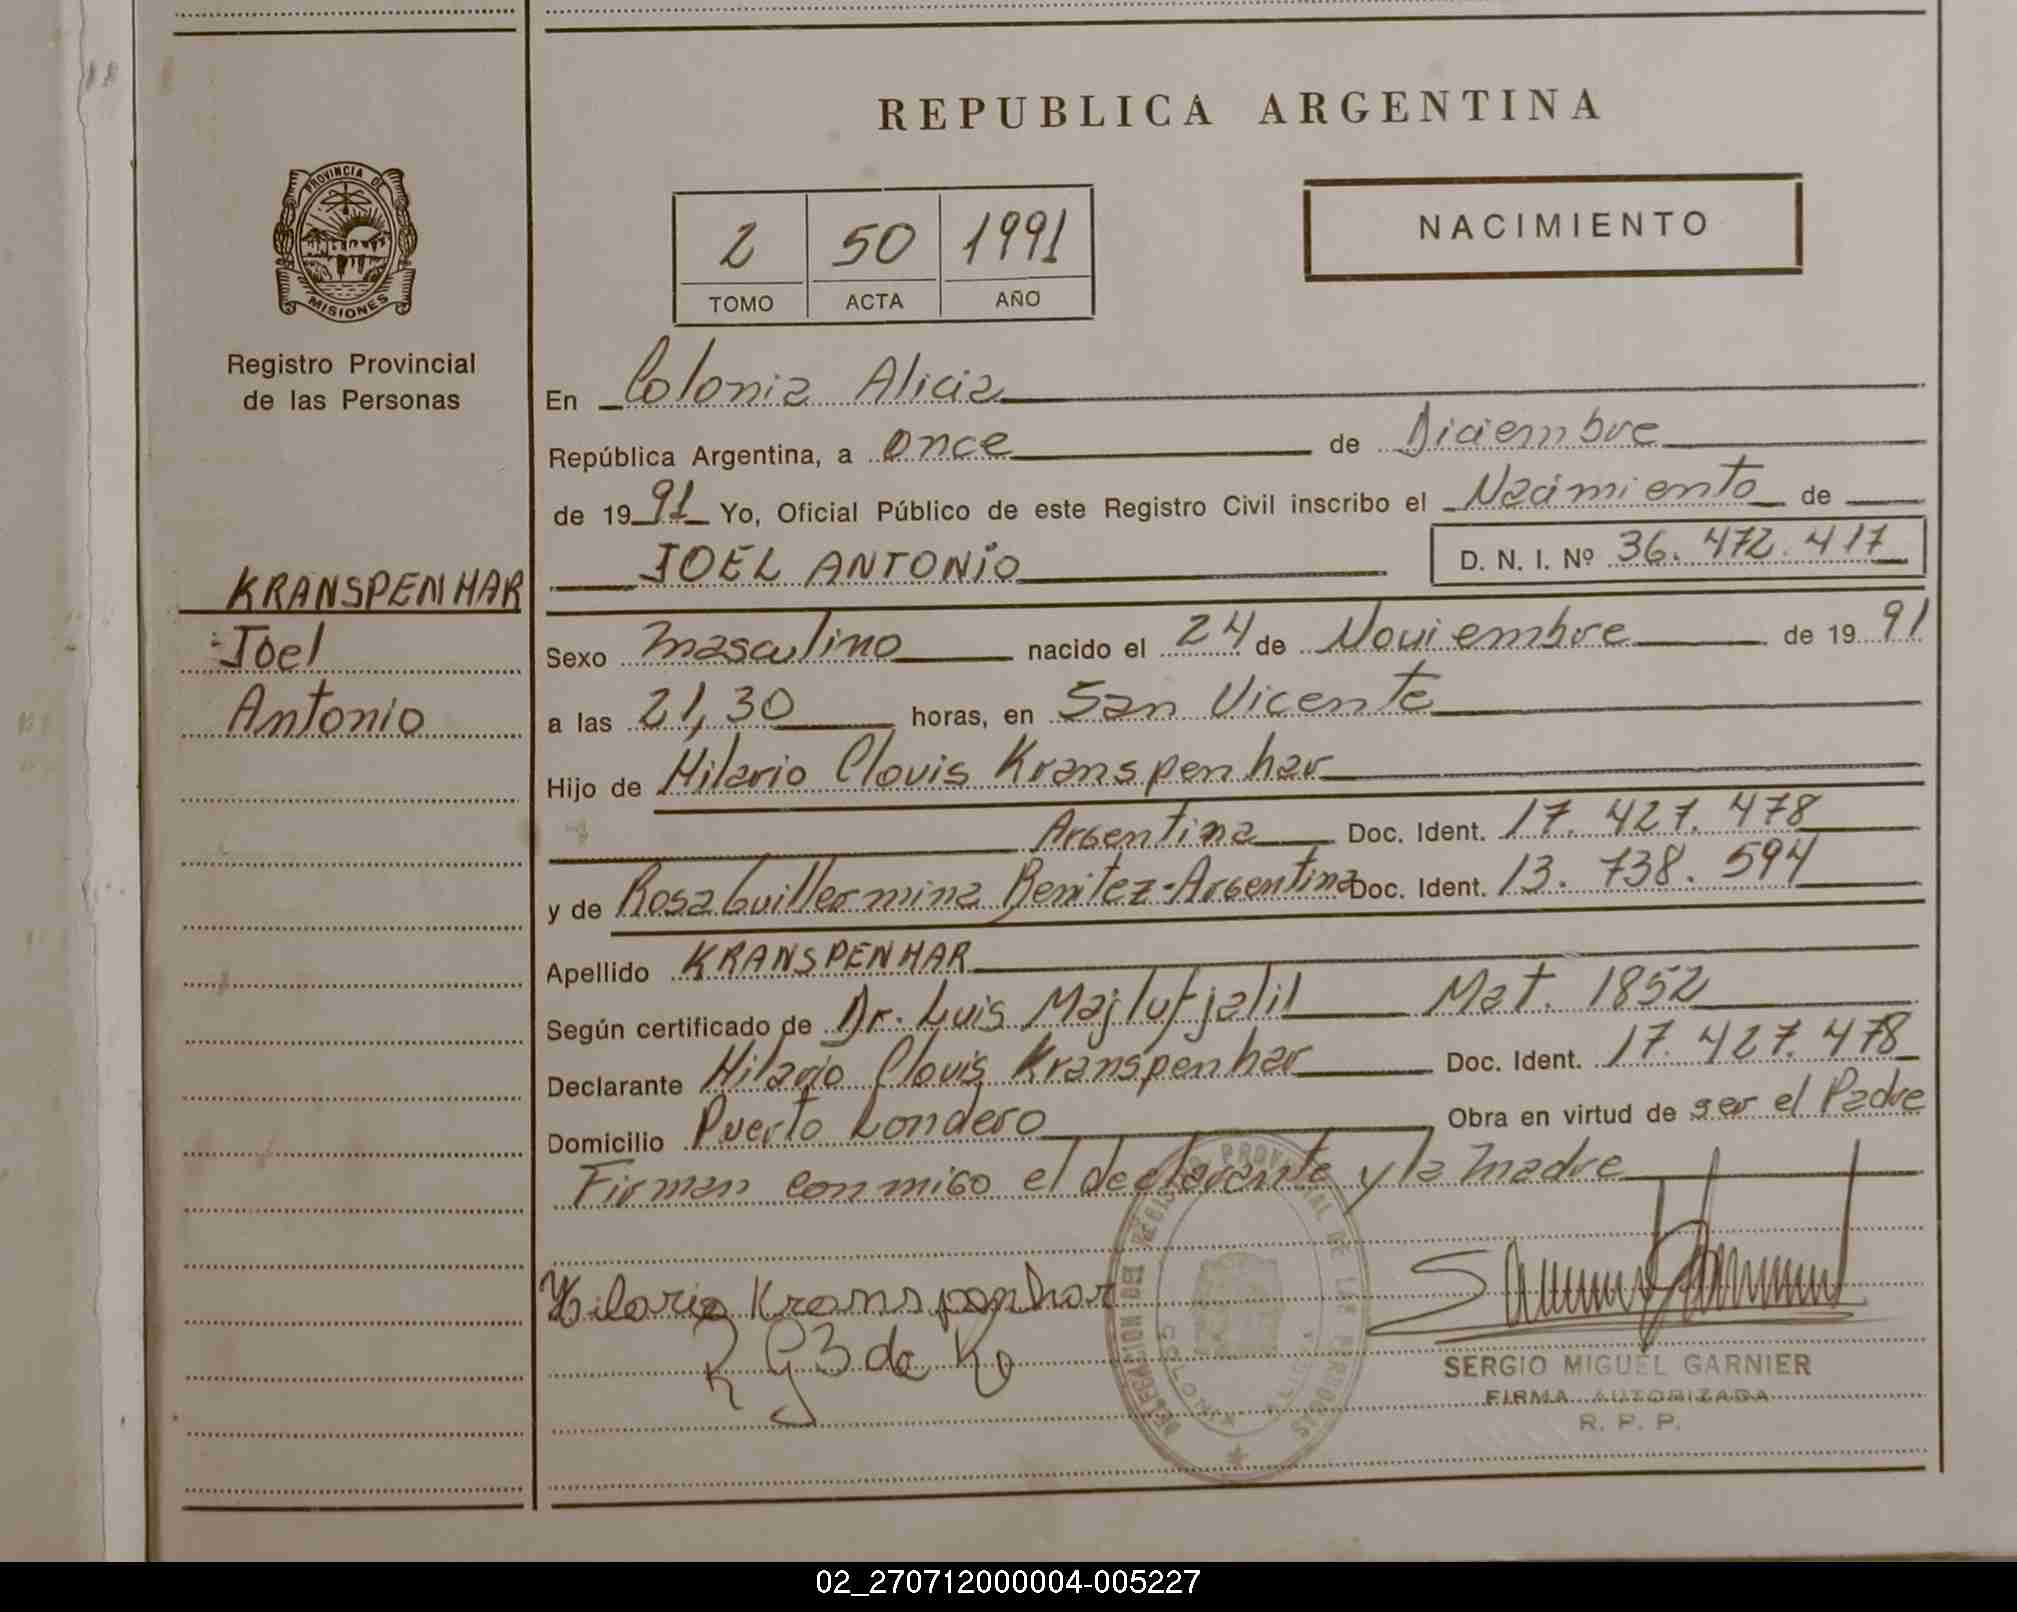 REPUBLICA ARGENTINA
PROVINCIA DE
MISIONES
Registro Provincial
de las Personas
2 50 1991
TOMO ACTA AÑO
NACIMIENTO
En Colonia Alicia
República Argentina, a once de Diciembre
de 1991 Yo, Oficial Público de este Registro Civil inscribo el Nacimiento de
JOEL ANTONIO D. N. I. Nº 36.472.417
KRANSPENHAR
Joel
Antonio
Sexo masculino nacido el 24 de Noviembre de 1991
a las 21,30 horas, en San Vicente
Hijo de Hilario Clovis Kranspenhar
Argentina Doc. Ident. 17.427.478
y de Rosa Guillermina Benitez-Argentina Doc. Ident. 13.738.594
Apellido KRANSPENHAR
Según certificado de Dr. Luis Majluf jalil Mat. 1852
Declarante Hilario Clovis Kranspenhar Doc. Ident. 17.427.478
Domicilio Puerto Londero Obra en virtud de ser el Padre
Firman conmigo el declarante y la madre
Hilario Kranspenhar
R G B de K
DELEGACION DEL REGISTRO PROVINCIAL DE LAS PERSONAS
COLONIA ALICIA
SERGIO MIGUEL GARNIER
FIRMA AUTORIZADA
R. P. P.
02_270712000004-005227